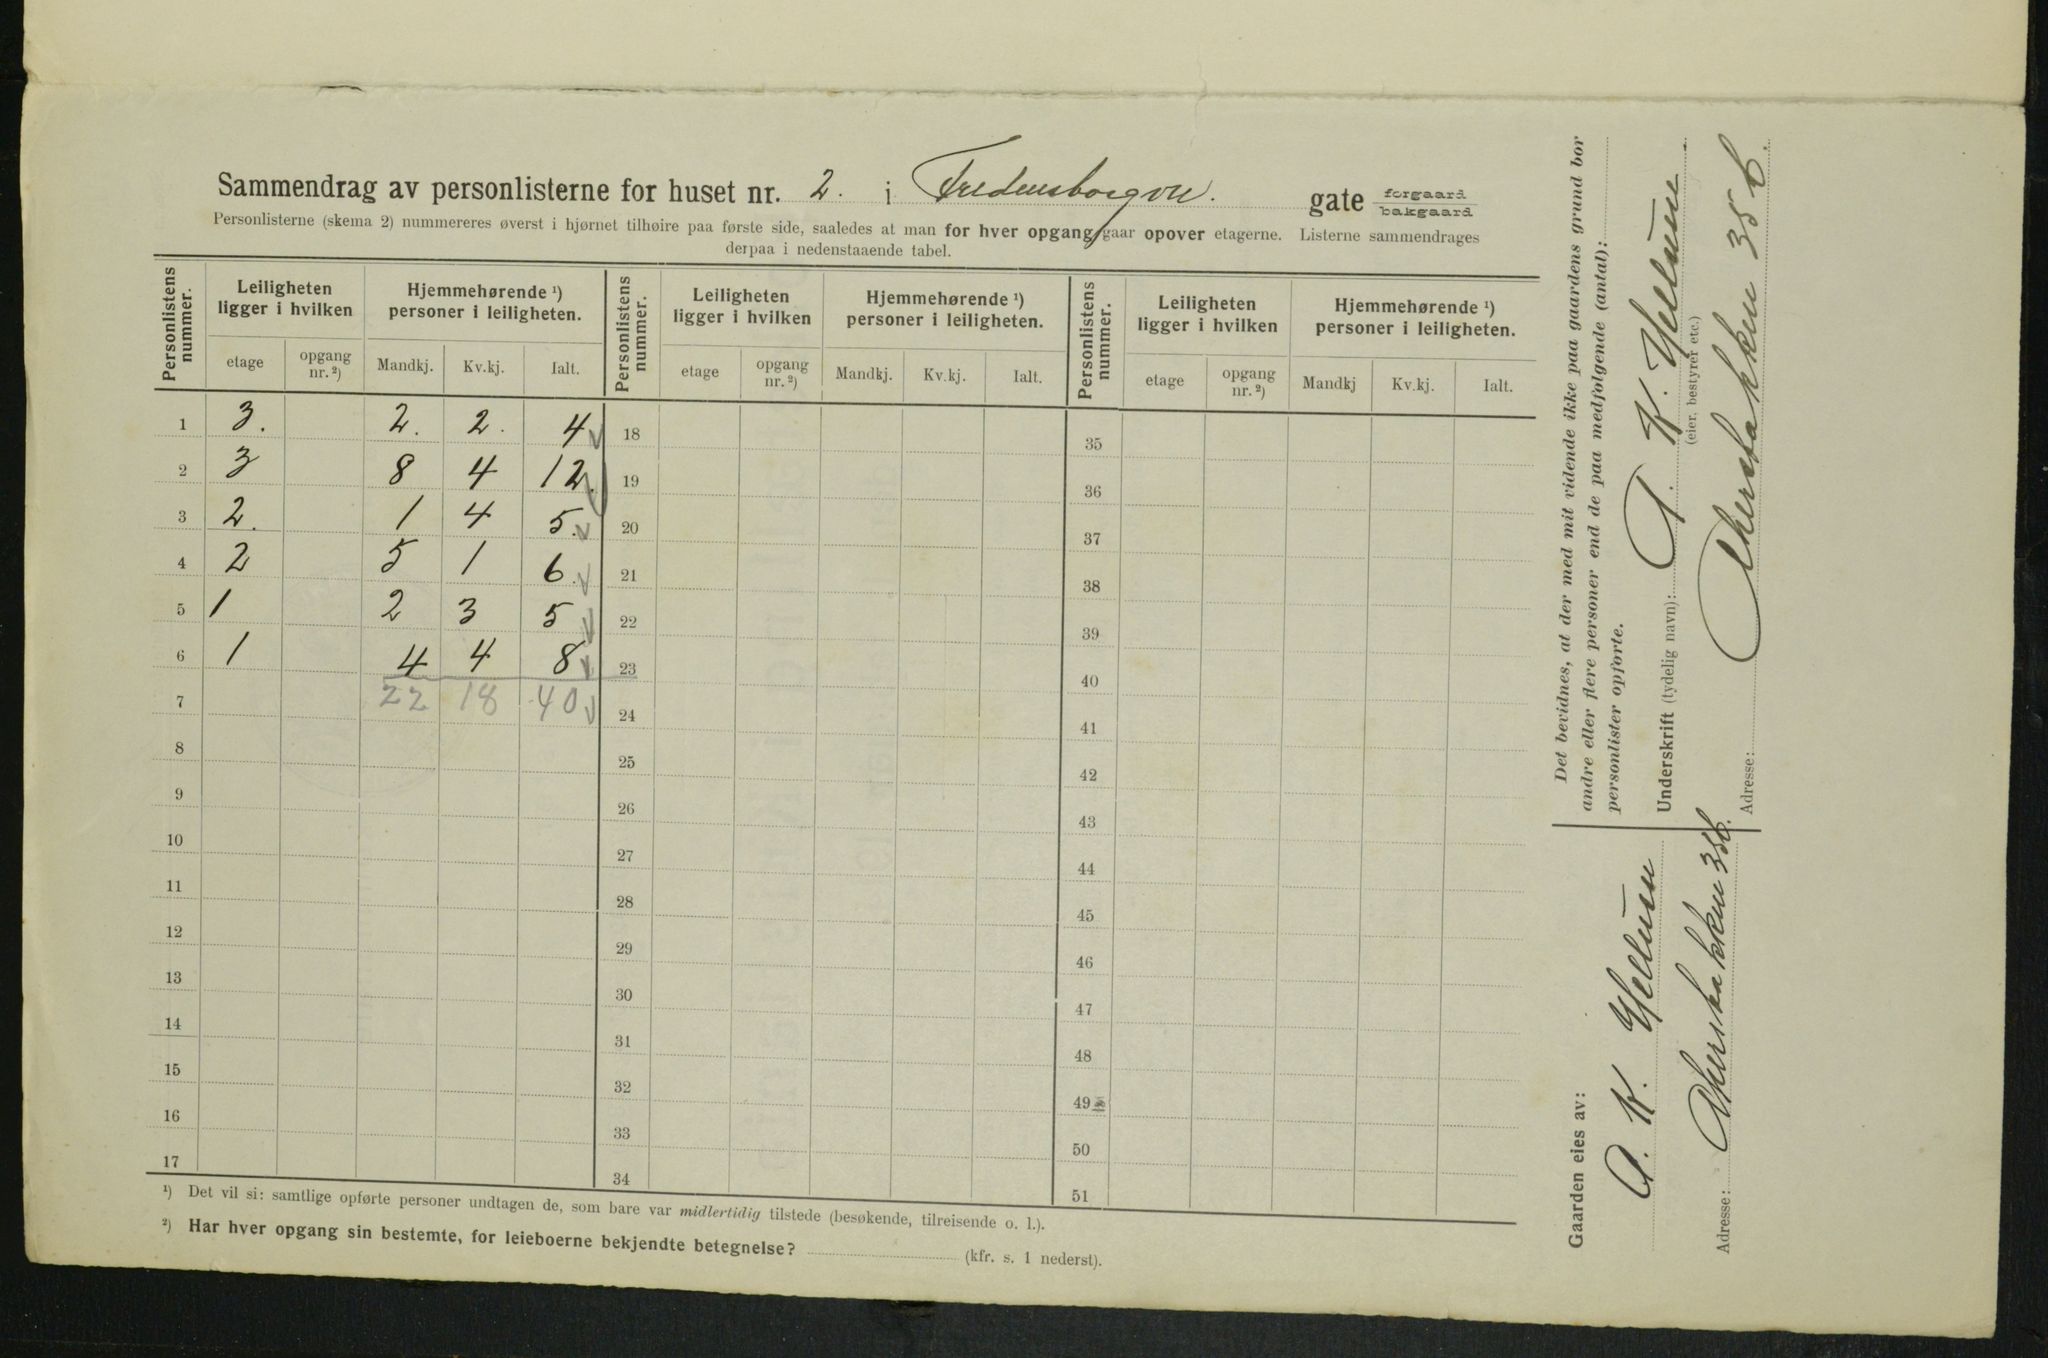 Sammendrag av personlisterne for huset nr. 2. i Fredensborgvn. gate forgaard bakgaard
Personlisterne (skema 2) nummereres øverst i hjørnet tilhøire paa første side, saaledes at man for hver opgang gaar opover etagerne. Listerne sammendrages
derpaa i nedenstaaende tabel.
Personlistens nummer. Leiligheten ligger i hvilken Hjemmehørende ¹) personer i leiligheten. Personlistens nummer. Leiligheten ligger i hvilken Hjemmehørende ¹) personer i leiligheten. Personlistens nummer. Leiligheten ligger i hvilken Hjemmehørende ¹) personer i leiligheten.
etage opgang nr. ²) Mandkj. Kv.kj. Ialt. etage opgang nr. ²) Mandkj. Kv.kj. Ialt. etage opgang nr. ²) Mandkj Kv.kj. Ialt.
1 3. 2. 2. 4 18 35
2 3 8 4 12. 19 36
3 2. 1 4 5. 20 37
4 2 5 1 6. 21 38
5 1 2 3 5 22 39
6 1 4 4 8 23 40
7 22 18 40 24 41
8 25 42
9 26 43
10 27 44
11 28 45
12 29 46
13 30 47
14 31 48
15 32 49
16 33 50
17 34 51
¹) Det vil si: samtlige opførte personer undtagen de, som bare var midlertidig tilstede (besøkende, tilreisende o. l.).
²) Har hver opgang sin bestemte, for leieboerne bekjendte betegnelse? (kfr. s. 1 nederst).
Det bevidnes, at der med mit vidende ikke paa gaardens grund bor
andre eller flere personer end de paa medfølgende (antal):
personlister opførte.
Underskrift (tydelig navn): K.
(eier, bestyrer etc.)
Adresse: Akersbakken 35 b.
Gaarden eies av:
A. K.
Adresse: Akersbakken 35b.